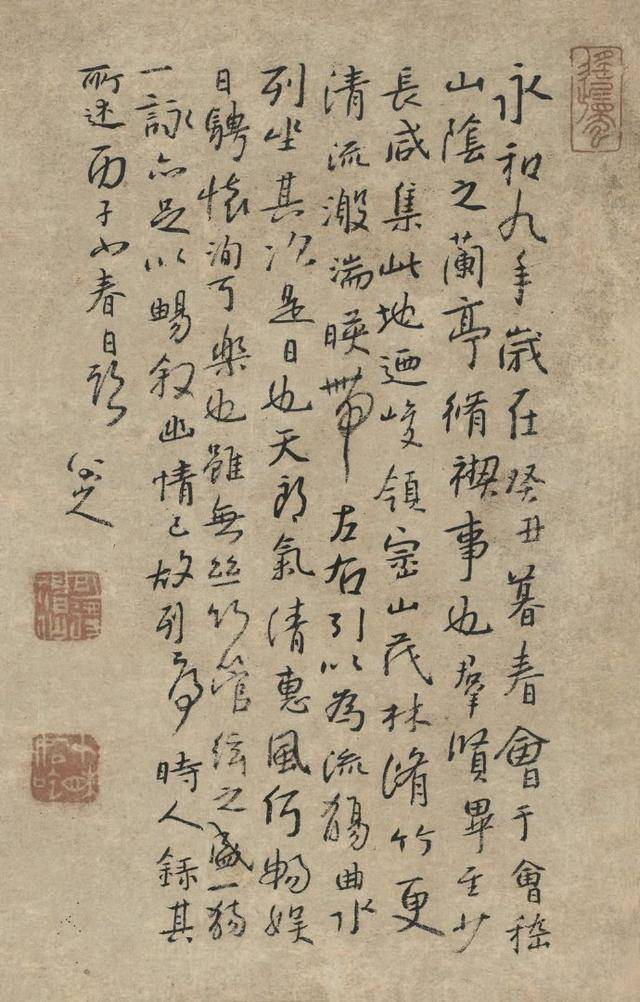 永和九年歲在癸丑暮春會于會稽
山陰之蘭亭脩禊事也羣賢畢至少
長咸集此地迺峻領崇山茂林脩竹更
清流激湍暎帶左右引以為流觴曲水
列坐其次是日也天朗氣清惠風和暢娛
目騁懷洵可樂也雖無絲竹管絃之盛一觴
一詠亦足以暢敘幽情已故列序時人錄其
所述丙子春日題
八大山人